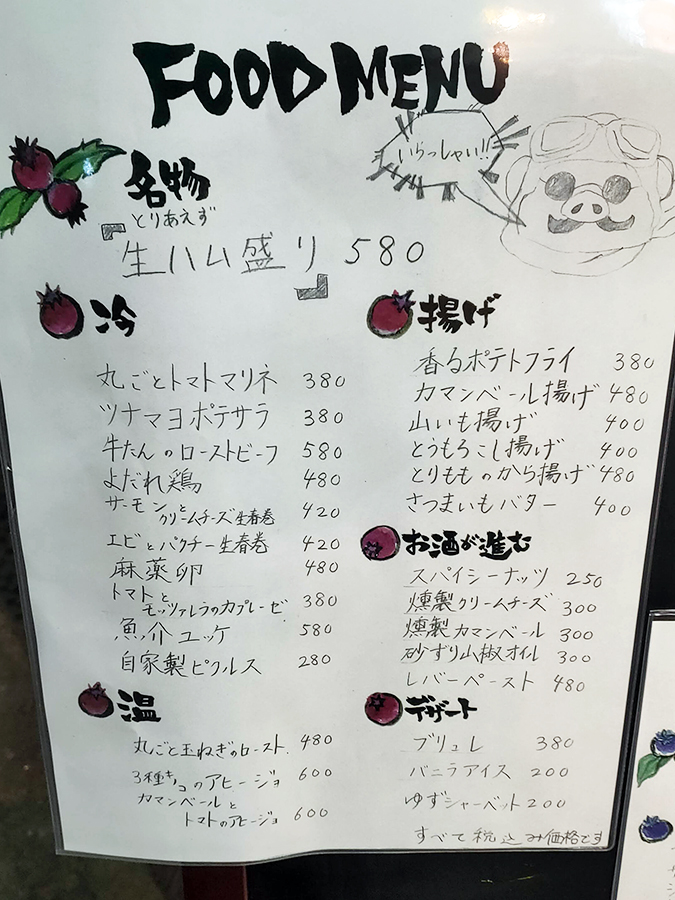 FOOD MENU
いらっしゃい!!
名物
とりあえず
『生ハム盛り 580』
冷
丸ごとトマトマリネ 380
ツナマヨポテサラ 380
牛たんのローストビーフ 580
よだれ鶏 480
サーモンと
クリームチーズ生春巻 420
エビとパクチー生春巻 420
麻薬卵 480
トマトと
モッツァレラのカプレーゼ 380
魚介ユッケ 580
自家製ピクルス 280
温
丸ごと玉ねぎのロースト 480
3種キノコのアヒージョ 600
カマンベールと
トマトのアヒージョ 600
揚げ
香るポテトフライ 380
カマンベール揚げ 480
山いも揚げ 400
とうもろこし揚げ 400
とりもものから揚げ 480
さつまいもバター 400
お酒が進む
スパイシーナッツ 250
燻製クリームチーズ 300
燻製カマンベール 300
砂ずり山椒オイル 300
レバーペースト 480
デザート
ブリュレ 380
バニラアイス 200
ゆずシャーベット 200
すべて税込み価格です